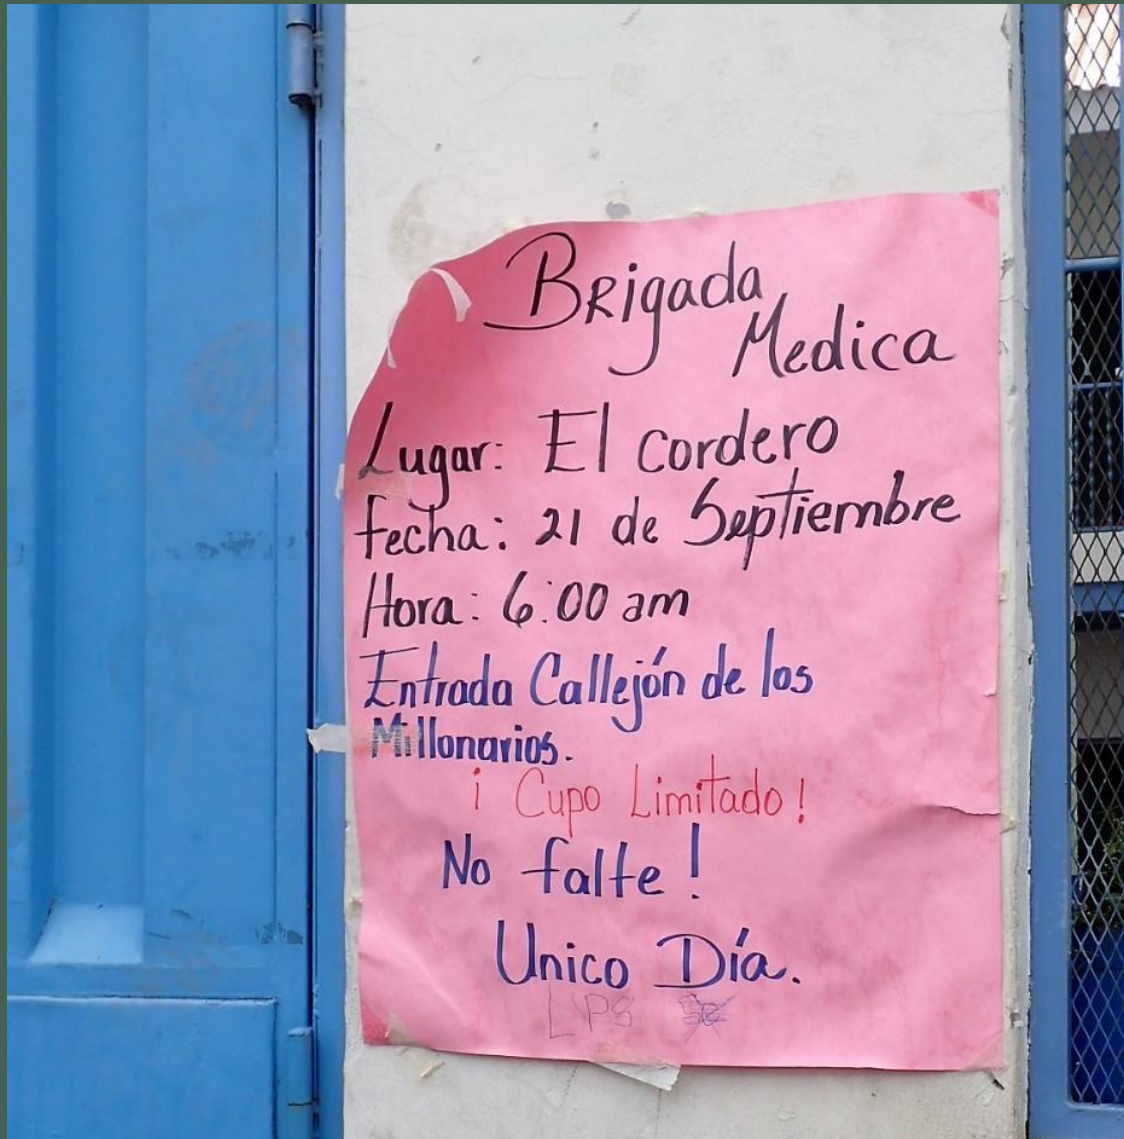 Brigada
Medica
Lugar: El cordero
fecha: 21 de Septiembre
Hora: 6:00 am
Entrada Callejón de los
Millonarios.
¡Cupo Limitado!
No falte!
Unico Día.
LPS